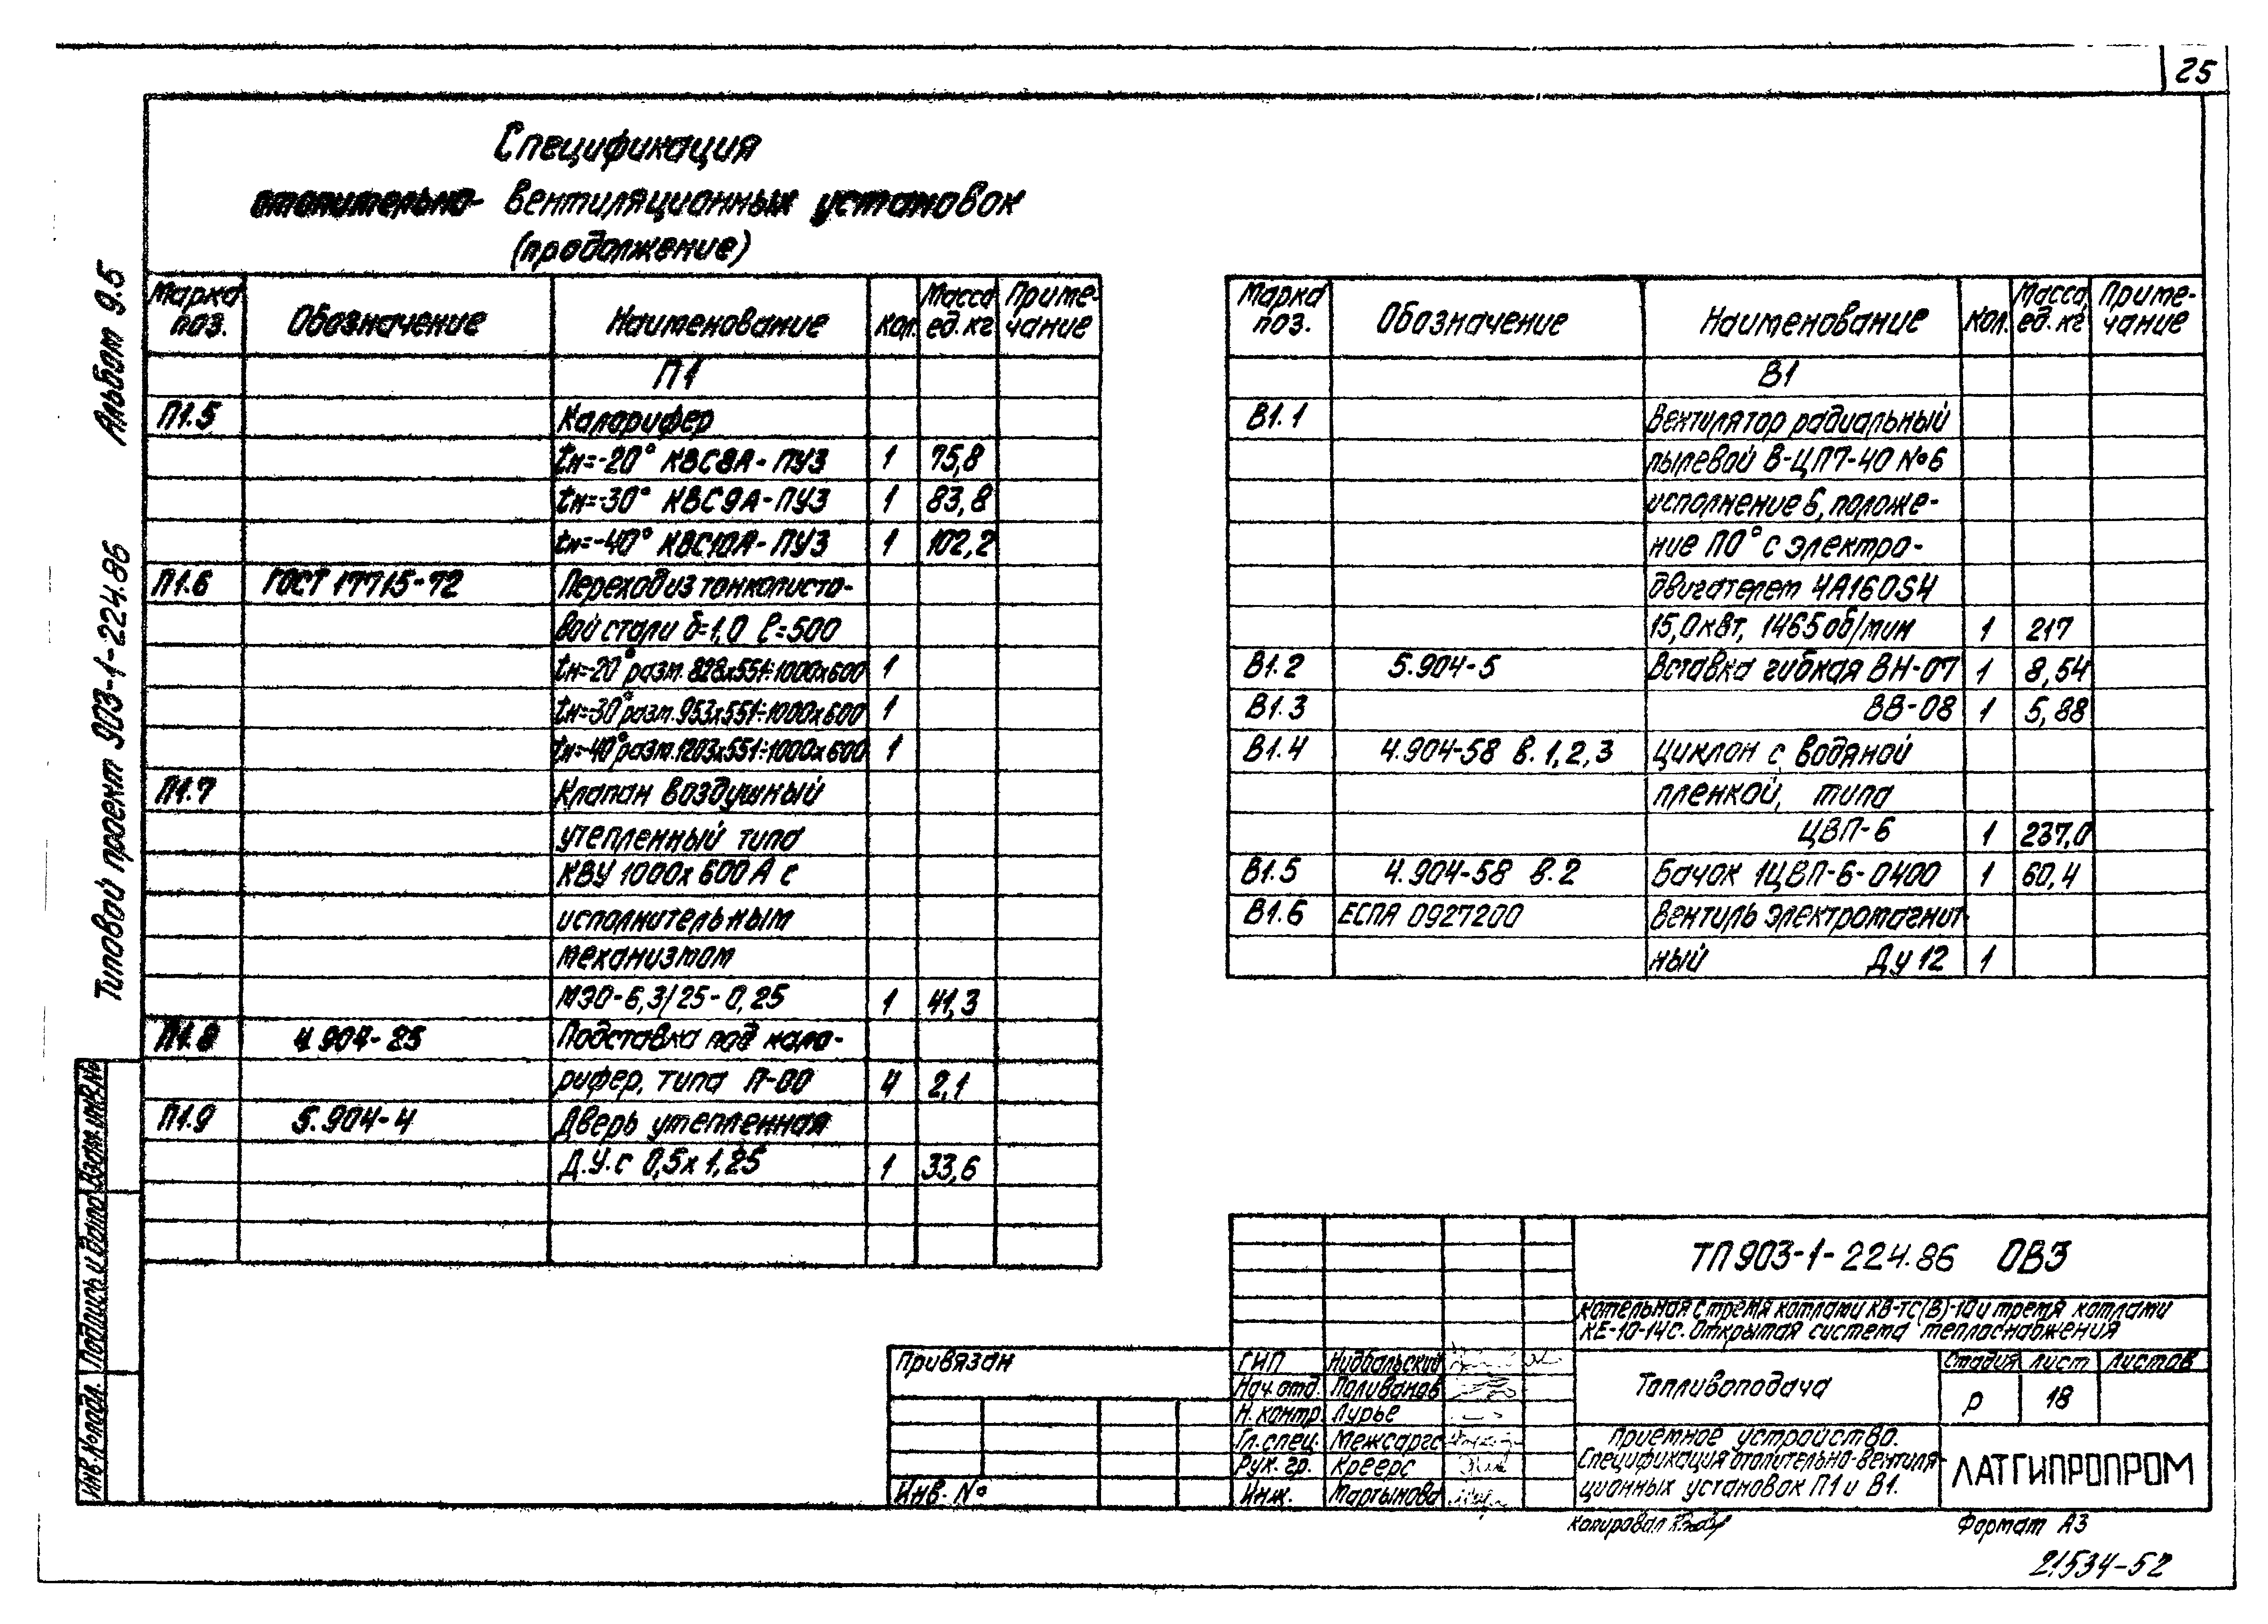 25
Спецификация
отопительно- вентиляционных установок
(продолжение)
Альбом 9.5
Типовой проект 903-1-224.86
Марка поз. Обозначение Наименование Кол. Масса ед. кг Приме-чание
П1
П1.5 Калорифер
tн=-20° КВС8А-ПУ3 1 75,8
tн=-30° КВС9А-ПУ3 1 83,8
tн=-40° КВС10А-ПУ3 1 102,2
П1.6 ГОСТ 17715-72 Переход из тонколисто-
вой стали δ=1,0 ℓ=500
tн=-20° разм. 828х551÷1000х600 1
tн=-30° разм. 953х551÷1000х600 1
tн=-40° разм. 1203х551÷1000х600 1
П1.7 Клапан воздушный
утепленный типа
КВУ 1000х600А с
исполнительным
механизмом
МЭО-6,3/25-0,25 1 41,3
П1.8 4.904-25 Подставка под кало-
рифер, типа П-00 4 2,1
П1.9 5.904-4 Дверь утепленная
Д.У.с 0,5х1,25 1 33,6
Марка поз. Обозначение Наименование Кол. Масса, ед. кг Приме-чание
В1
В1.1 Вентилятор радиальный
пылевой В-ЦП7-40 №6
исполнение 6, положе-
ние П0° с электро-
двигателем 4А160S4
15,0 квт, 1465 об/мин 1 217
В1.2 5.904-5 Вставка гибкая ВН-07 1 8,54
В1.3 ВВ-08 1 5,88
В1.4 4.904-58 в.1,2,3 Циклон с водяной
пленкой, типа
ЦВП-6 1 237,0
В1.5 4.904-58 в.2 Бачок 1ЦВП-6-0400 1 60,4
В1.6 ЕСПА 0927200 Вентиль электромагнит-
ный Ду 12 1
ТП 903-1-224.86 ОВ3
Котельная с тремя котлами КВ-ТС(В)-10 и тремя котлами
КЕ-10-14С. Открытая система теплоснабжения
Привязан
Инв. №
ГИП Нидбальский
Нач. отд. Поливанов
Н. контр. Лурье
Гл. спец. Межсаргс
Рук. гр. Креерс
Инж. Мартынова
Топливоподача
Стадия Лист Листов
Р 18
Приемное устройство.
Спецификация отопительно-вентиля-
ционных установок П1 и В1.
ЛАТГИПРОПРОМ
Копировал
Формат А3
21534-52
Инв. № подл. Подпись и дата Взам. инв. №